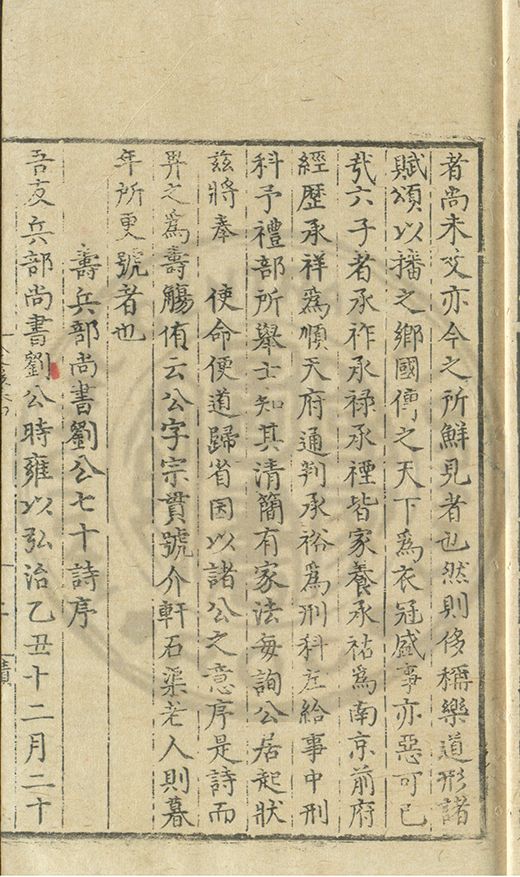 者尚未艾亦今之所鮮見者也然則侈稱樂道形諸
賦頌以播之鄉國傳之天下爲衣冠盛事亦惡可已
㢤六子者承祚承禄承禋皆家養承祜爲南京前府
經歷承祥爲順天府通判承裕爲刑科左給事中刑
科予禮部所舉士知其清簡有家法每詢公居起狀
兹將奉　使命便道歸省因以諸公之意序是詩而
畀之爲壽觴侑云公字宗貫號介軒石渠老人則暮
年所更號者也
壽兵部尚書劉公七十詩序
吾友兵部尚書劉公時雍以弘治乙丑十二月二十